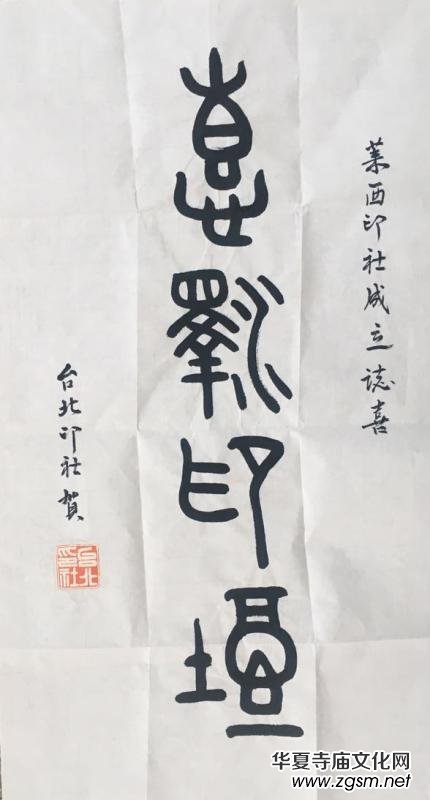 莱西印社成立誌喜
惪澤印壇
台北印社賀
台北印社
华夏寺庙文化网
www.zgsm.net